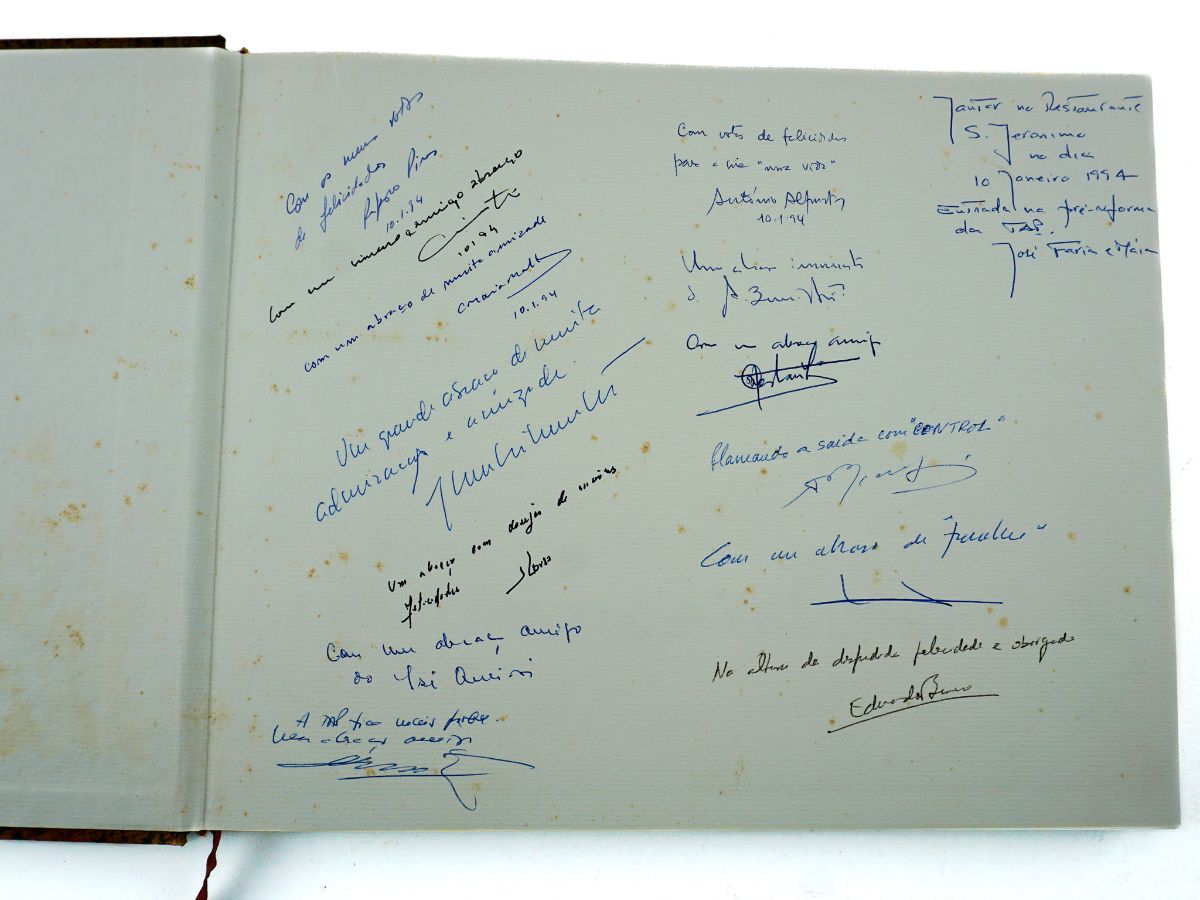 Com os meus votos
de felicidades
10.1.94
Com um imenso e amigo abraço
10 1 94
com um abraço de muita amizade
10.1.94
Um grande abraço de muita
admiração e amizade
Um abraço com desejos de muitas
felicidades
Com um abraço amigo
do Zé Queirós
A TAP fica mais pobre.
Um abraço amigo
Com votos de felicidades
para a sua "nova vida"
António
10.1.94
Um abraço
Com um abraço amigo
Planeando a saída com "CONTROL"
Com um abraço de
Na altura da despedida felicidade e obrigado
Eduardo
Jantar no Restaurante
S. Jeronimo
no dia
10 Janeiro 1994
Entrada na pré-reforma
da TAP.
José Faria e Maia